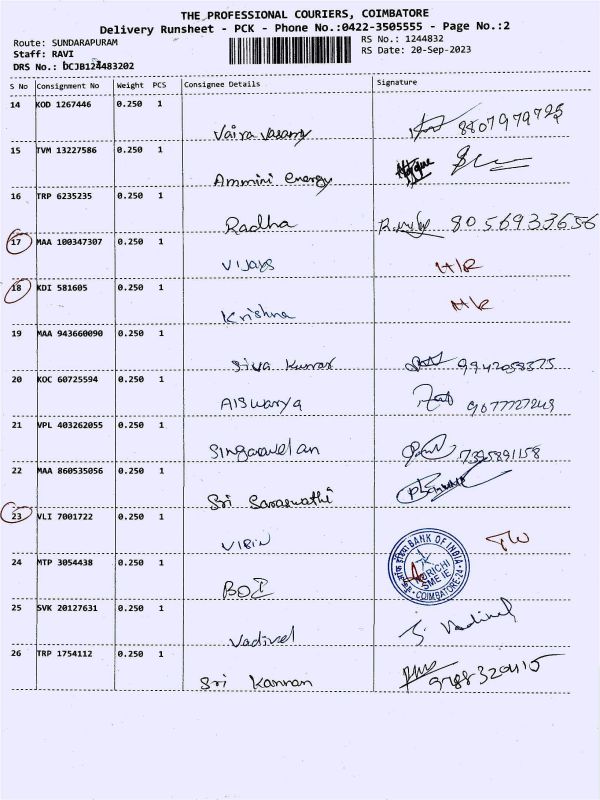 THE PROFESSIONAL COURIERS, COIMBATORE
Delivery Runsheet - PCK - Phone No.:0422-3505555 - Page No.:2
Route: SUNDARAPURAM
RS No.: 1244832
Staff: RAVI
RS Date: 20-Sep-2023
DRS No.: DCJB124483202
S No Consignment No Weight PCS Consignee Details Signature
14 KOD 1267446 0.250 1
Vairavasamy 8807979725
15 TVM 13227586 0.250 1
Ammini energy
16 TRP 6235235 0.250 1
Radha 8056933656
17 MAA 100347307 0.250 1
Vijaya H/R
18 KDI 581605 0.250 1
Krishna H/R
19 MAA 943660090 0.250 1
Siva Kumar 9942058375
20 KOC 60725594 0.250 1
Aiswarya 9077727249
21 VPL 403262055 0.250 1
Singaravelan 7395891158
22 MAA 860535056 0.250 1
Sri Saraswathi
23 VLI 7001722 0.250 1
VIBIN
24 MTP 3054438 0.250 1
BOI
BANK OF INDIA
SME
COIMBATORE-24
25 SVK 20127631 0.250 1
Vadivel S. Vadivel
26 TRP 1754112 0.250 1
Sri Kannan